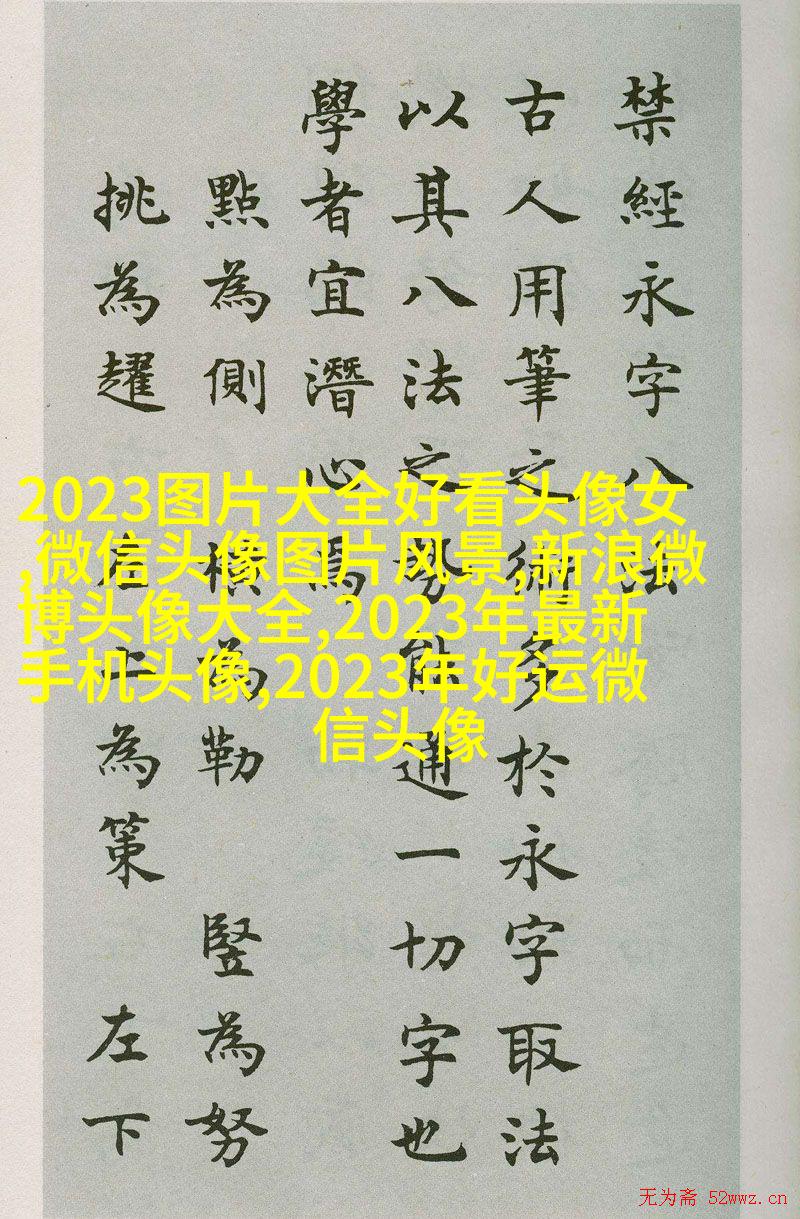 禁經永字八法
古人用筆之術多於永字取法
以其八法之勢能通一切字也
學者宜潛心焉
點為側 橫為勒 豎為努
挑為趯 左上為策 左下
2023图片大全好看头像女
,微信头像图片风景,新浪微
博头像大全,2023年最新
手机头像,2023年好运微
信头像
无为斋 52wwz.cn